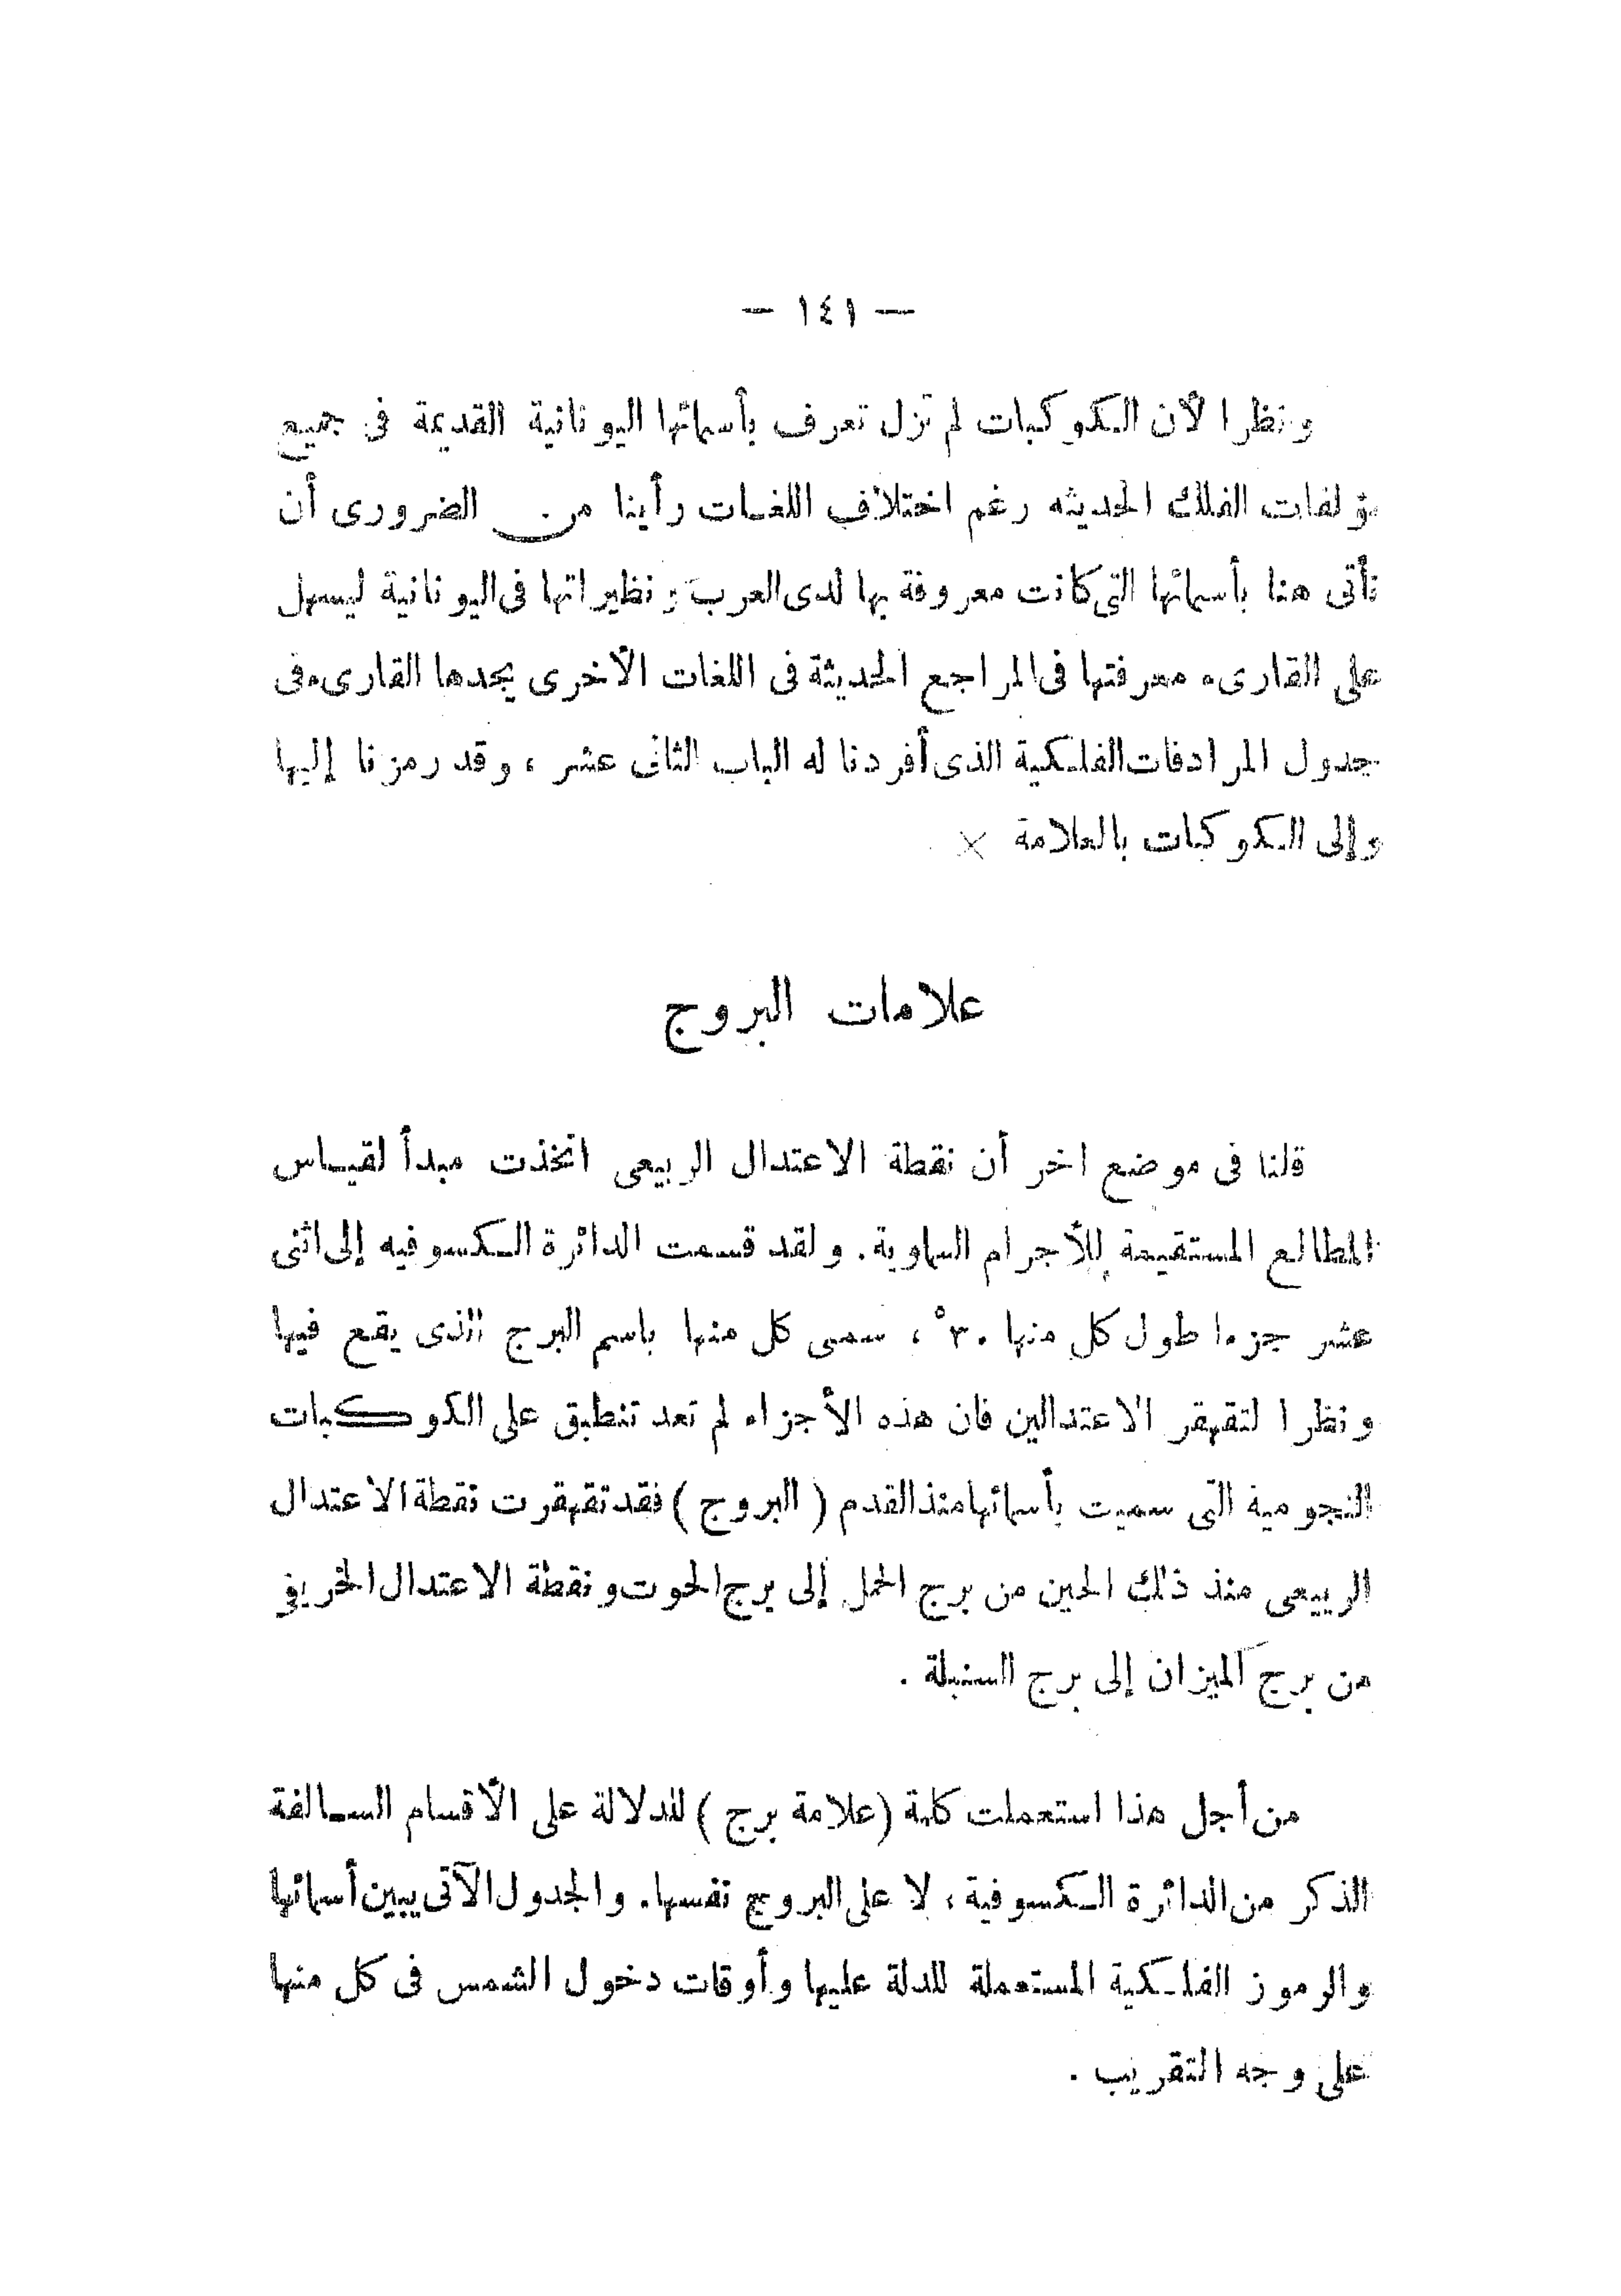 — ١٤١ —
ونظرا لأن الكوكبات لم تزل تعرف بأسمائها اليونانية القديمة فى جميع
مؤلفات الفلك الحديثه رغم اختلاف اللغات رأينا من الضرورى أن
نأتى هنا بأسمائها التى كانت معروفة بها لدى العرب ونظيراتها فى اليونانية ليسهل
على القارىء معرفتها فى المراجع الحديثة فى اللغات الأخرى يجدها القارىء فى
جدول المرادفات الفلكية الذى أفردنا له الباب الثانى عشر ، وقد رمزنا إليها
وإلى الكوكبات بالعلامة ×
علامات البروج
قلنا فى موضع اخر أن نقطة الاعتدال الربيعى اتخذت مبدأ لقياس
المطالع المستقيمة للأجرام السماوية. ولقد قسمت الدائرة الكسوفيه إلى اثنى
عشر جزءا طول كل منها ٣٠° ، سمى كل منها باسم البرج الذى يقع فيها
ونظرا لتقهقر الاعتدالين فان هذه الأجزاء لم تعد تنطبق على الكوكبات
النجومية التى سميت بأسمائها منذ القدم ( البروج ) فقد تقهقرت نقطة الاعتدال
الربيعى منذ ذلك الحين من برج الحمل إلى برج الحوت ونقطة الاعتدال الخريفى
من برج الميزان إلى برج السنبلة .
من أجل هذا استعملت كلمة (علامة برج ) للدلالة على الأقسام السالفة
الذكر من الدائرة الكسوفية ، لا على البروج نفسها. والجدول الآتى يبين أسمائها
والرموز الفلكية المستعملة للدلة عليها وأوقات دخول الشمس فى كل منها
على وجه التقريب .